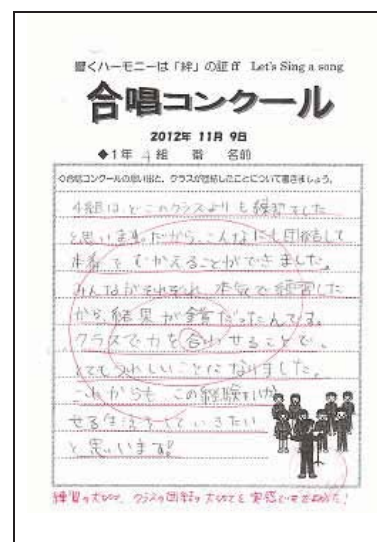 響くハーモニーは「絆」の証 ff Let's Sing a song
合唱コンクール
2012年 11月 9日
◆1年 4組 番 名前
◇合唱コンクールの思い出と、クラスが団結したことについて書きましょう。
4組はどこのクラスよりも練習をした
と思います。だから、こんなにも団結して
本番をむかえることができました。
みんながそれぞれ、本気で練習した
から、結果が金賞だったんです。
クラスで力を合わせることで、
とてもうれしいことになりました。
これからも、この経験をいか
せる生活をしていきたい
と思います。
練習の大切さ、クラスの団結の大切さを実感できたね!